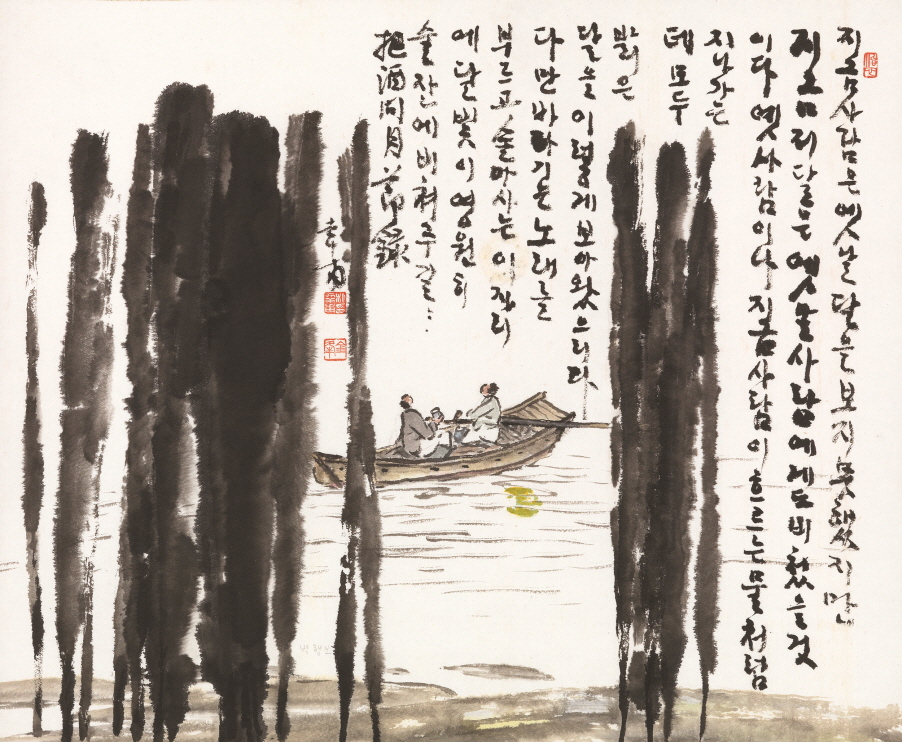 지금 사람은 옛날 달을 보지 못했지만
지금 저 달은 옛날 사람에게도 비쳤을 것
이다 옛사람이나 지금 사람이 흐르는 물처럼
지나가는
데 모두
밝은
달을 이렇게 보아왔으리라
다만 바라기는 노래를
부르고 술 마시는 이 자리
에 달빛이 영원히
술잔에 비쳐주길..
把酒問月 節錄
幸甫
박행보